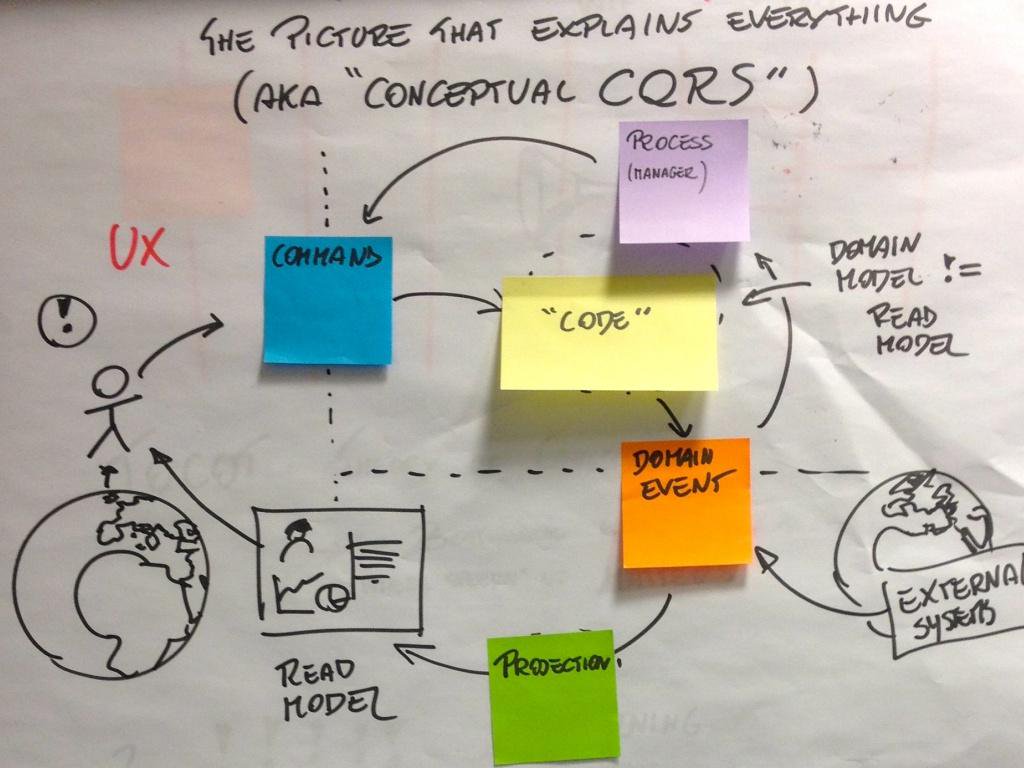 THE PICTURE THAT EXPLAINS EVERYTHING
(AKA "CONCEPTUAL CQRS")
PROCESS
(MANAGER)
UX
COMMAND
DOMAIN
MODEL !=
READ
MODEL
"CODE"
!
DOMAIN
EVENT
EXTERNAL
SYSTEMS
PROJECTION
READ
MODEL